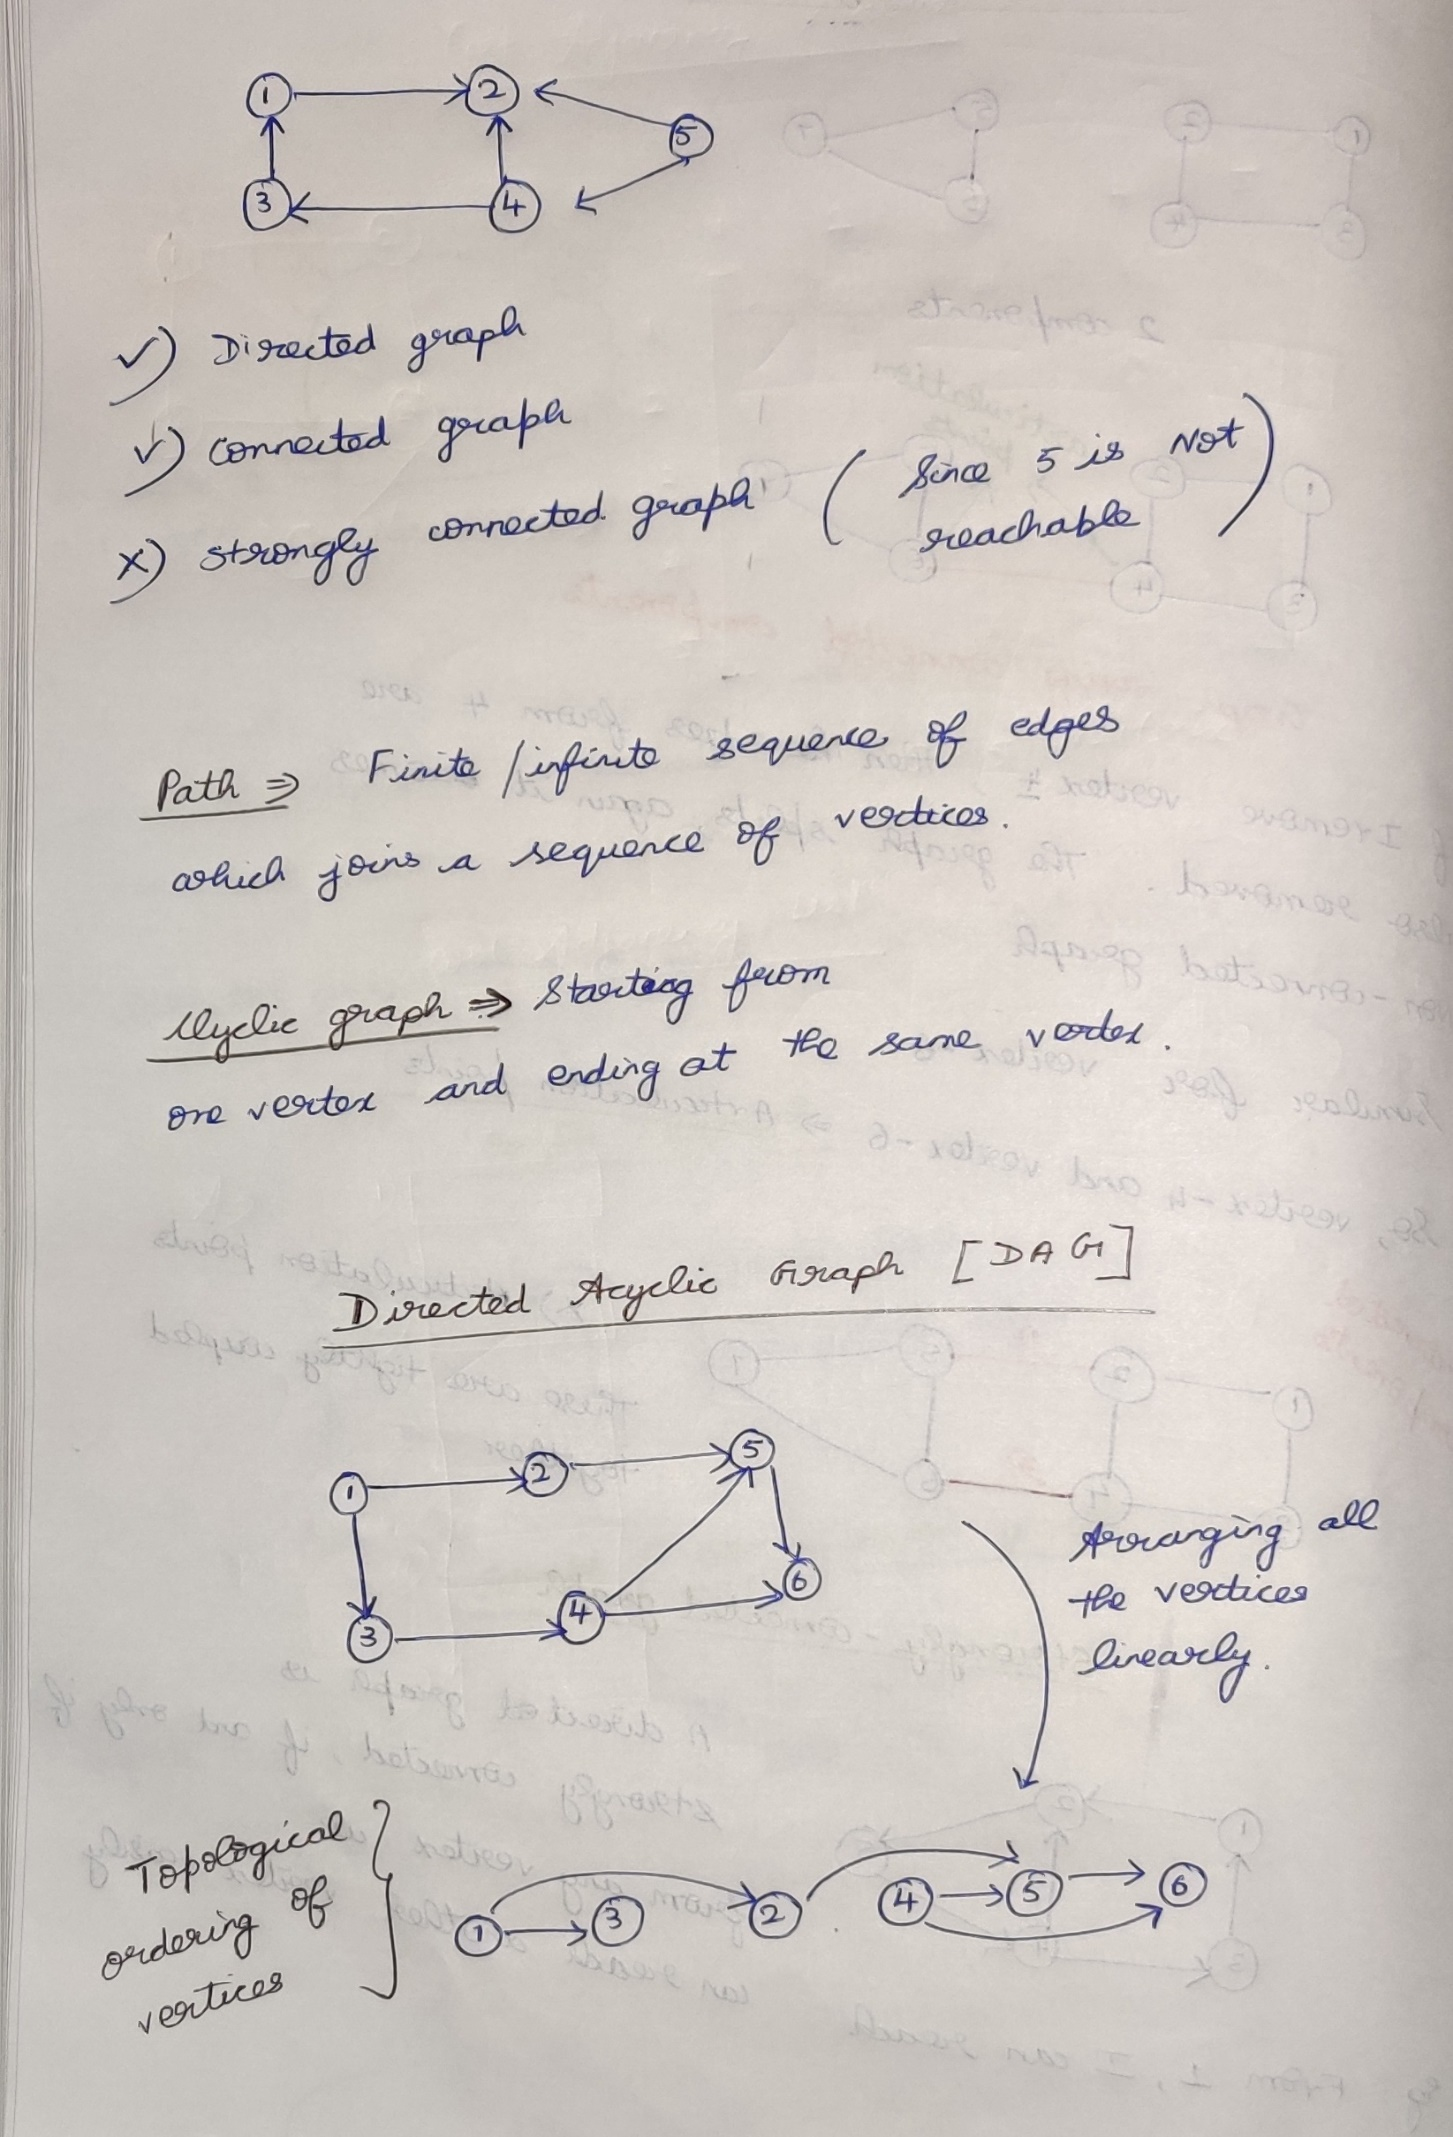 1 2 5
3 4
✓) Directed graph
✓) connected graph
x) strongly connected graph ( Since 5 is Not
reachable )
Path ⇒ Finite / infinite sequence of edges
which joins a sequence of vertices.
Cyclic graph ⇒ Starting from
one vertex and ending at the same vertex.
Directed Acyclic Graph [DAG]
1 2 5
3 4 6
Arranging all
the vertices
linearly.
Topological
ordering of
vertices
1 3 2 4 5 6